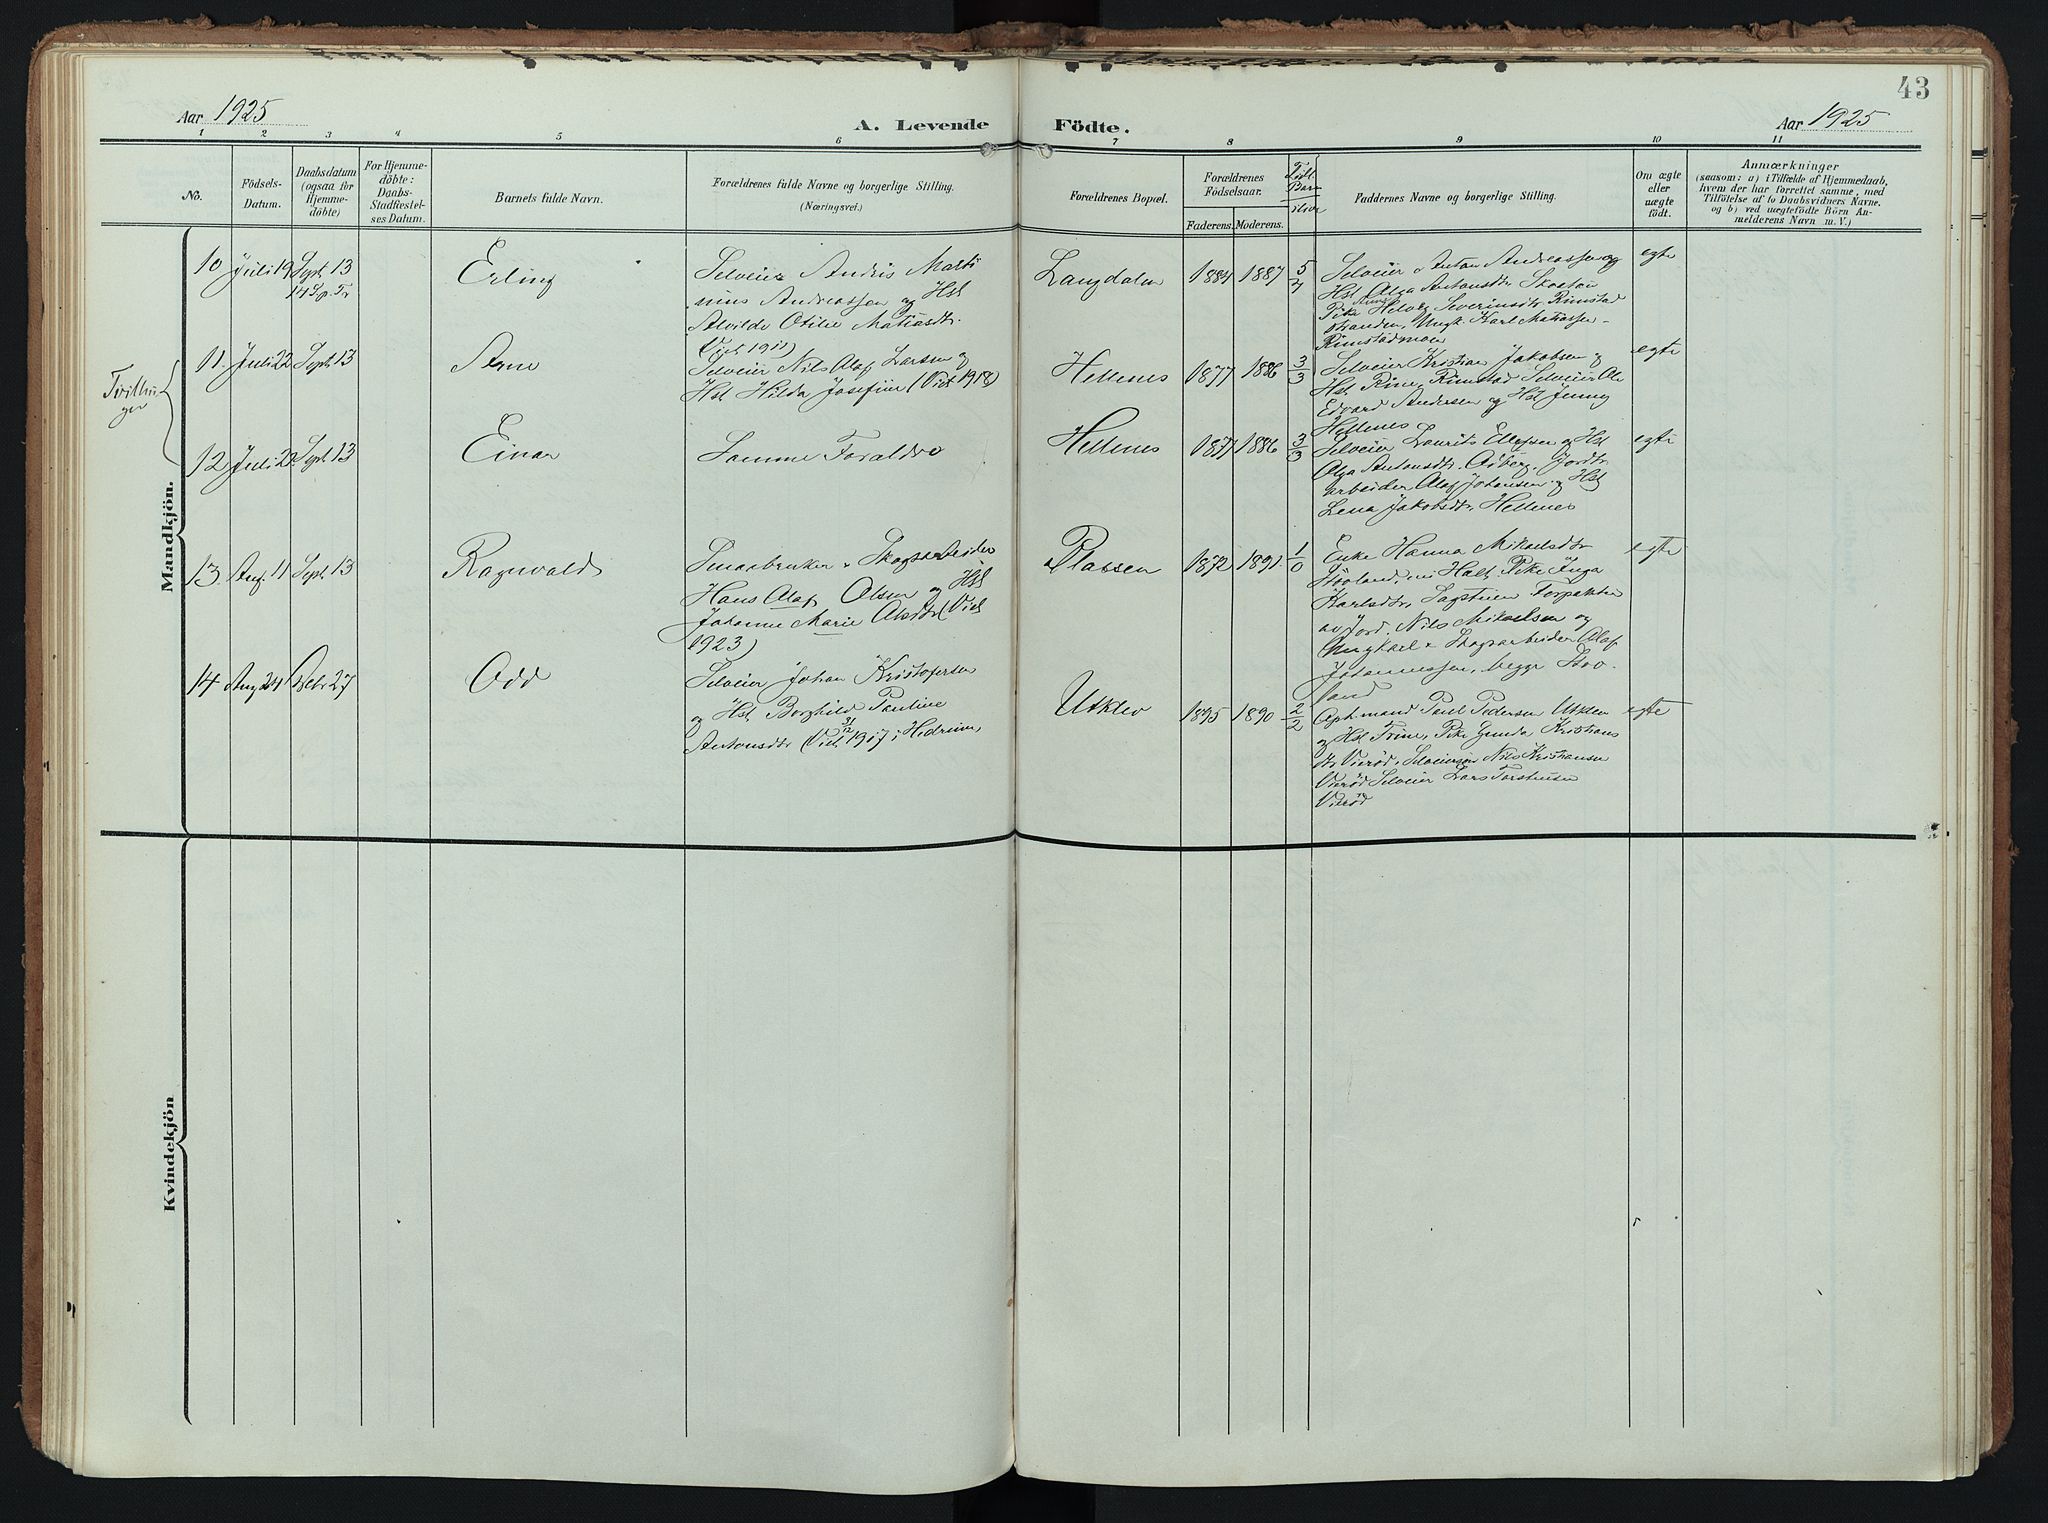 43
Aar 1925
A. Levende Födte.
Aar 1925
1 2 3 4 5 6 7 8 9 10 11
No.
Födsels-
Datum.
Daabsdatum
(ogsaa for
Hjemme-
döbte)
For Hjemme-
döbte:
Daabs-
Stadfæstel-
ses Datum.
Barnets fulde Navn.
Forældrenes fulde Navne og borgerlige Stilling.
(Næringsvei.)
Forældrenes Bopæl.
Forældrenes
Födselsaar.
Faderens. Moderens.
Födt
Barn
ilive
Faddernes Navne og borgerlige Stilling.
Om ægte
eller
uægte
födt.
Anmærkninger
(saasom: a) i Tilfælde af Hjemmedaab,
hvem der har forrettet samme, med
Tilföielse af to Daabsvidners Navne.
og b) ved uægtefödte Börn An-
melderens Navn m. V.)
Mandkjön.
10 Juli 19 Sept. 13
14 Sp. Tr
Erling
Selveier Andris Marti
nius Andreassen og Hst
Alvilde Otilie Matiasdtr.
(Viet 1911)
Langdalen
1884 1887 5/4
Selveier Anton Andreassen og
Hst Olga Antonsdtr. Skaaten
Pike Helvig Severinsdtr. Rimstad
stranden, Ungk. Karl Matiassen
Rimstadmoen
egte
Tvillin
ger
11. Juli 22 Sept. 13
Arne
Selveier Nils Olaf Larssen og
Hst Hilda Josefine (Viet 1918)
Hellenes
1877 1886 3/3
Selveier Kristian Jakobsen og
Hst Rine, Rimstad Selveier Ole
Edvard Andersen og Hst Jenny
Hellenes
egte
12 Juli 22 Sept. 13
Einar
Samme Foraldre
Hellenes
1877 1886 3/3
Selveier Laurits Ellefsen og Hst
Olga Antonsdtr. Aaberg, Jordbr.
arbeider Olaf Johansen og Hst
Lena Jakobsdtr, Hellenes
egte
13. Aug. 11 Sept. 13
Ragnvald
Smaabruker & Skogsarbeider
Hans Olaf Olsen og Hst
Johanne Marie Olesdtr (Viet
1923)
Plassen
1872 1891 1/0
Enke Hanna Mikaelsdtr
Höoland, Pike Inga
Karlsdtr, Sagstuen Forpakter
av Jord, Nils Mikaelsen og
Ungkarl & Skogsarbeider Olaf
Johannessen, begge Hvo
land
egte
14 Aug 24 Debr 27
Odd
Selveier Johan Kristofersen
og Hst Borghild Pauline
Antonsdtr (Viet 31/12 1917 i Hedrum,
Utklev
1895 1890 2/2
Oph.mand Paul Pedersen Utklev
og Hst Trine, Pike Gunda Kristians
dtr Vierød, Selveiersøn Nils Kristiansen
Vierød Selveier Lars Torstensen
Vierød
egte
Kvindekjön